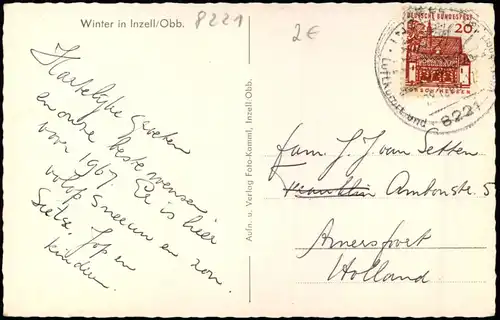 Winter in Inzell/Obb.
8221
2€
Hartelijke groeten
en onze beste wensen
voor 1967. Er is hier
volop sneeuw en zon.
Sietse, Jop en
kinderen.
Aufn. u. Verlag Foto-Kamml, Inzell Obb.
DEUTSCHE BUNDESPOST
20
LORSCH/HESSEN
Luftkurort und
8221
Fam. J. J. van Setten
Ambonstr. 5
Amersfoort
Holland